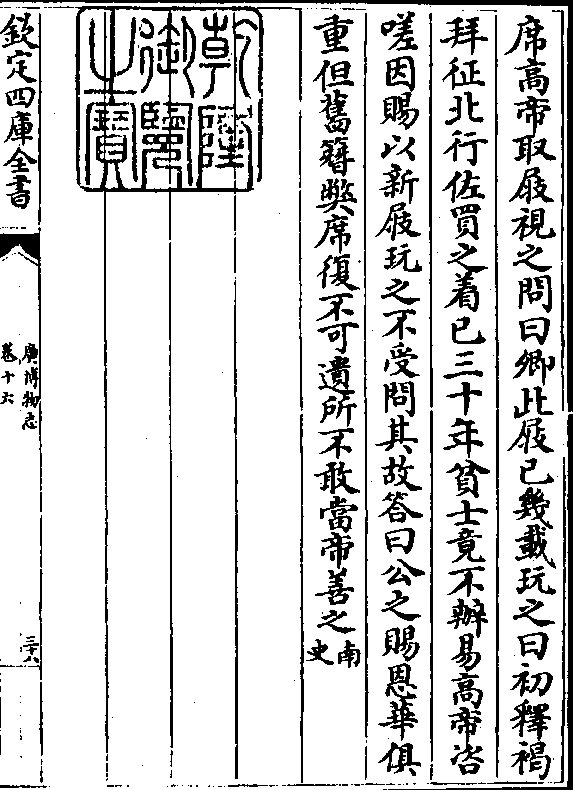 席高帝取屐視之問曰卿此屐已幾載玩之曰初釋褐
拜征北行佐買之着已三十年貧士竟不辦易高帝咨
嗟因賜以新屐玩之不受問其故答曰公之賜恩華俱
重但舊簪弊席復不可遺所不敢當帝善之南史
乾隆御覽之寶
欽定四庫全書
廣博物志
卷十六
三十八